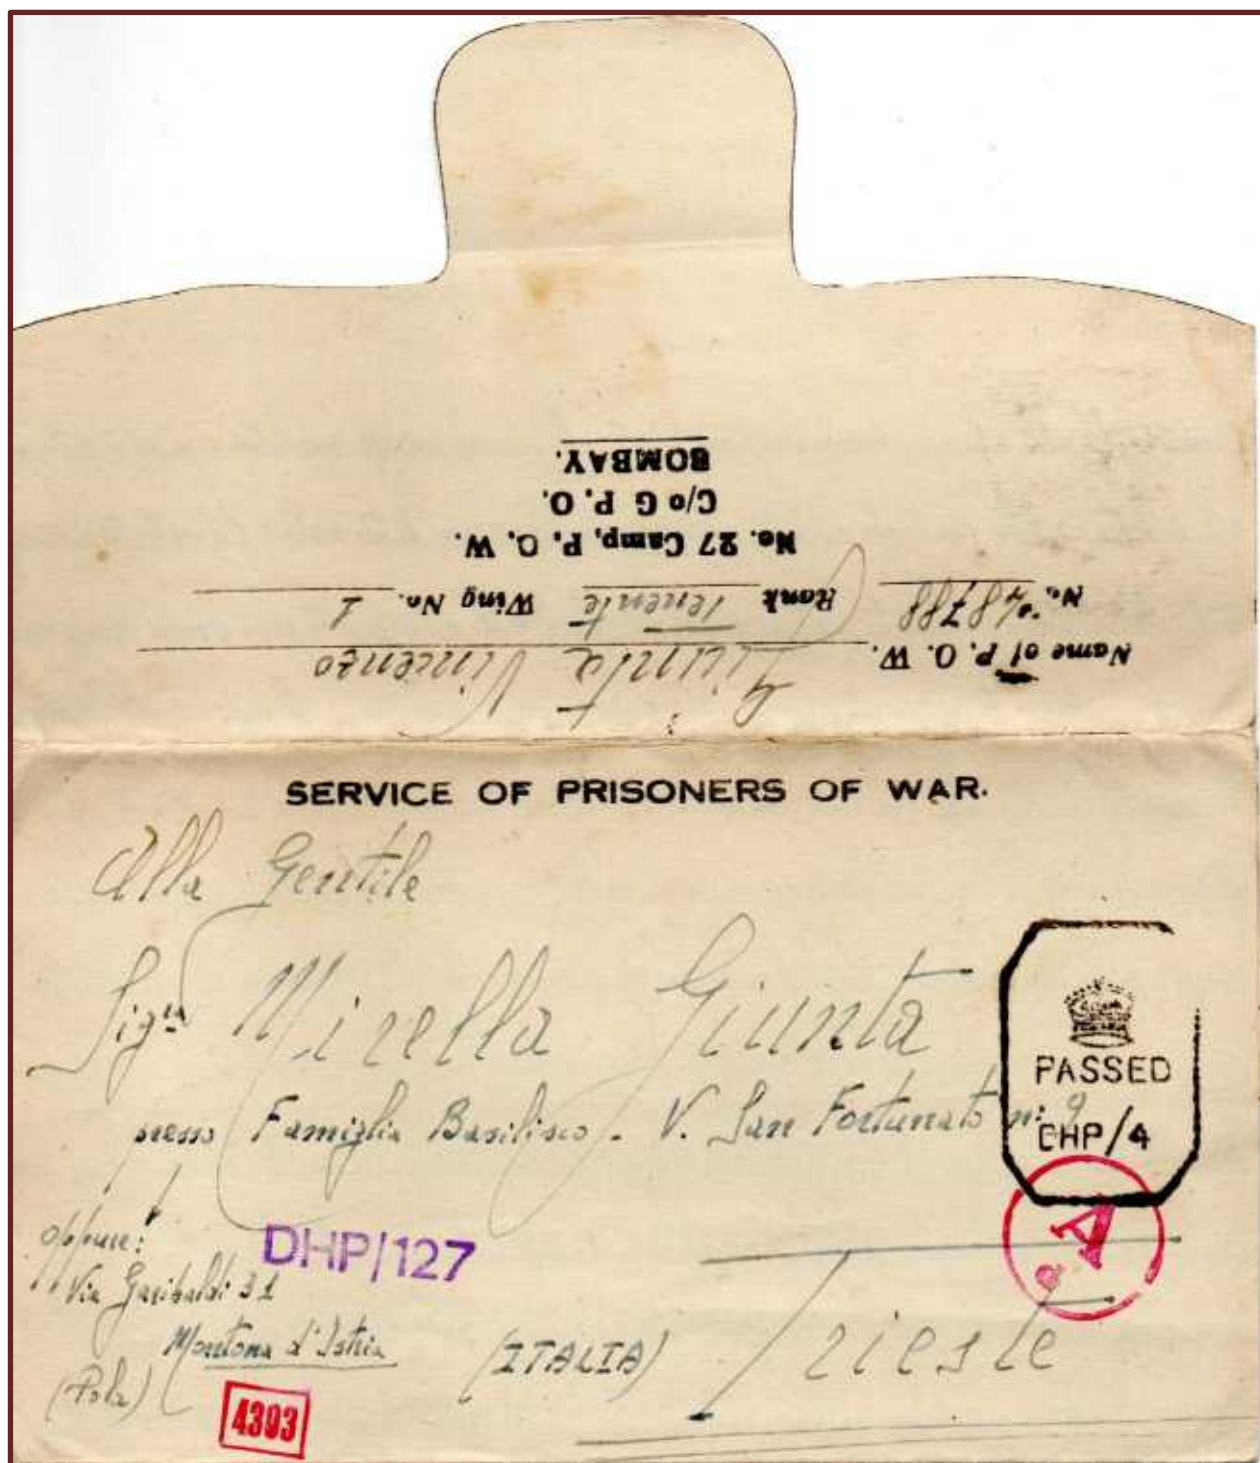 Name of P. O. W. Giunta Vincenzo
No. 48788 Rank Tenente Wing No. 1
No. 27 Camp, P. O. W.
C/o G P. O.
BOMBAY.
SERVICE OF PRISONERS OF WAR.
Alla Gentile
Sig.ra Mirella Giunta
presso Famiglia Basilisco. V. San Fortunato n: 9
oppure:
Via Garibaldi 31
Montona d'Istria
(Pola)
(ITALIA)
Trieste
PASSED
DHP/4
A
DHP/127
4393